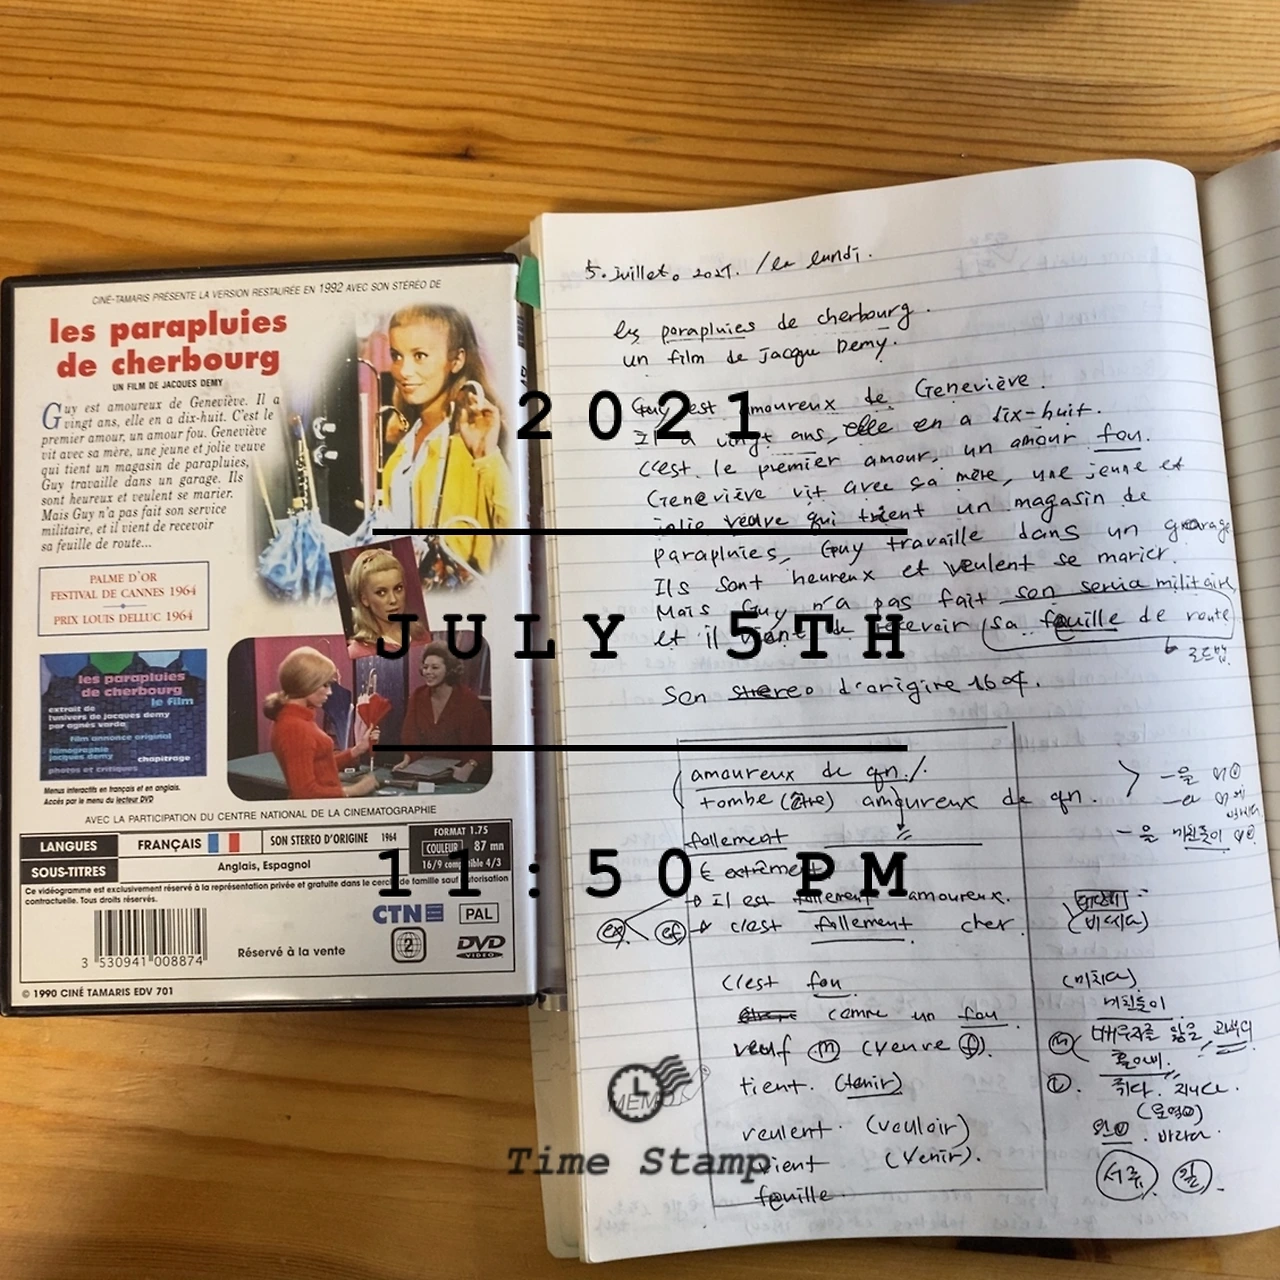 CINÉ-TAMARIS PRÉSENTE LA VERSION RESTAURÉE EN 1992 AVEC SON STÉRÉO DE
les parapluies
de cherbourg
UN FILM DE JACQUES DEMY
Guy est amoureux de Geneviève. Il a
vingt ans, elle en a dix-huit. C'est le
premier amour, un amour fou. Geneviève
vit avec sa mère, une jeune et jolie veuve
qui tient un magasin de parapluies,
Guy travaille dans un garage. Ils
sont heureux et veulent se marier.
Mais Guy n'a pas fait son service
militaire, et il vient de recevoir
sa feuille de route...
PALME D'OR
FESTIVAL DE CANNES 1964
PRIX LOUIS DELLUC 1964
les parapluies
de cherbourg
le film
extrait de
l'univers de jacques demy
par agnès varda
film annonce original
filmographie
jacques demy
chapitrage
photos et critiques
Menus interactifs en français et en anglais.
Accès par le menu du lecteur DVD
AVEC LA PARTICIPATION DU CENTRE NATIONAL DE LA CINEMATOGRAPHIE
LANGUES
FRANÇAIS
SON STEREO D'ORIGINE 1964
FORMAT 1.75
COULEUR 87 mn
16/9 compatible 4/3
SOUS-TITRES
Anglais, Espagnol
Ce vidéogramme est exclusivement réservé à la représentation privée et gratuite dans le cercle de famille sauf autorisation
contractuelle. Tous droits réservés.
CTN
PAL
2
DVD
VIDEO
Réservé à la vente
3 530941 008874
© 1990 CINÉ TAMARIS EDV 701
5. juillet. 2021. / le lundi.
les parapluies de cherbourg.
un film de Jacque Demy.
Guy est amoureux de Geneviève.
Il a vingt ans, elle en a dix-huit.
C'est le premier amour, un amour fou.
Geneviève vit avec sa mère, une jeune et
jolie veuve qui tient un magasin de
parapluies, Guy travaille dans un garage
Ils sont heureux et veulent se marier.
Mais Guy n'a pas fait son militaire
et il vient de recevoir sa feuille de route
Son stereo d'origine
amoureux de qn.
tombe (être) amoureux de qn.
follement
extrême
Il est follement amoureux.
ex
c'est follement cher.
C'est fou
comme un fou
veuf m (veuve f).
tient. (tenir)
veulent. (vouloir)
vient (venir).
feuille.
(미치다)
미친듯이
배우자를 잃은
홀아비.
쥐다. 지니다.
바라다.
서류
잎
2021
JULY 5TH
11:50 PM
MEMO
Time Stamp